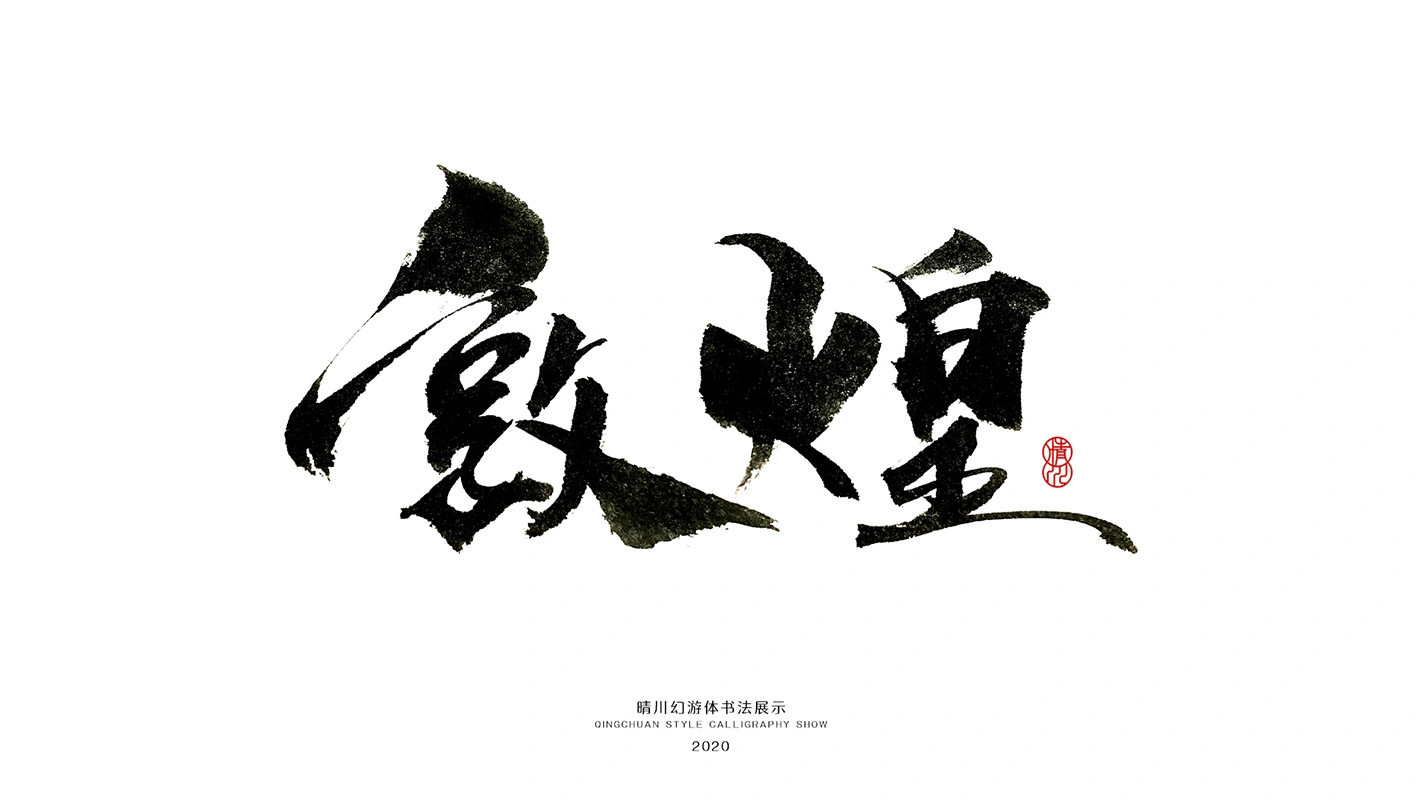 敦煌
晴川
晴川幻游体书法展示
QINGCHUAN STYLE CALLIGRAPHY SHOW
2020